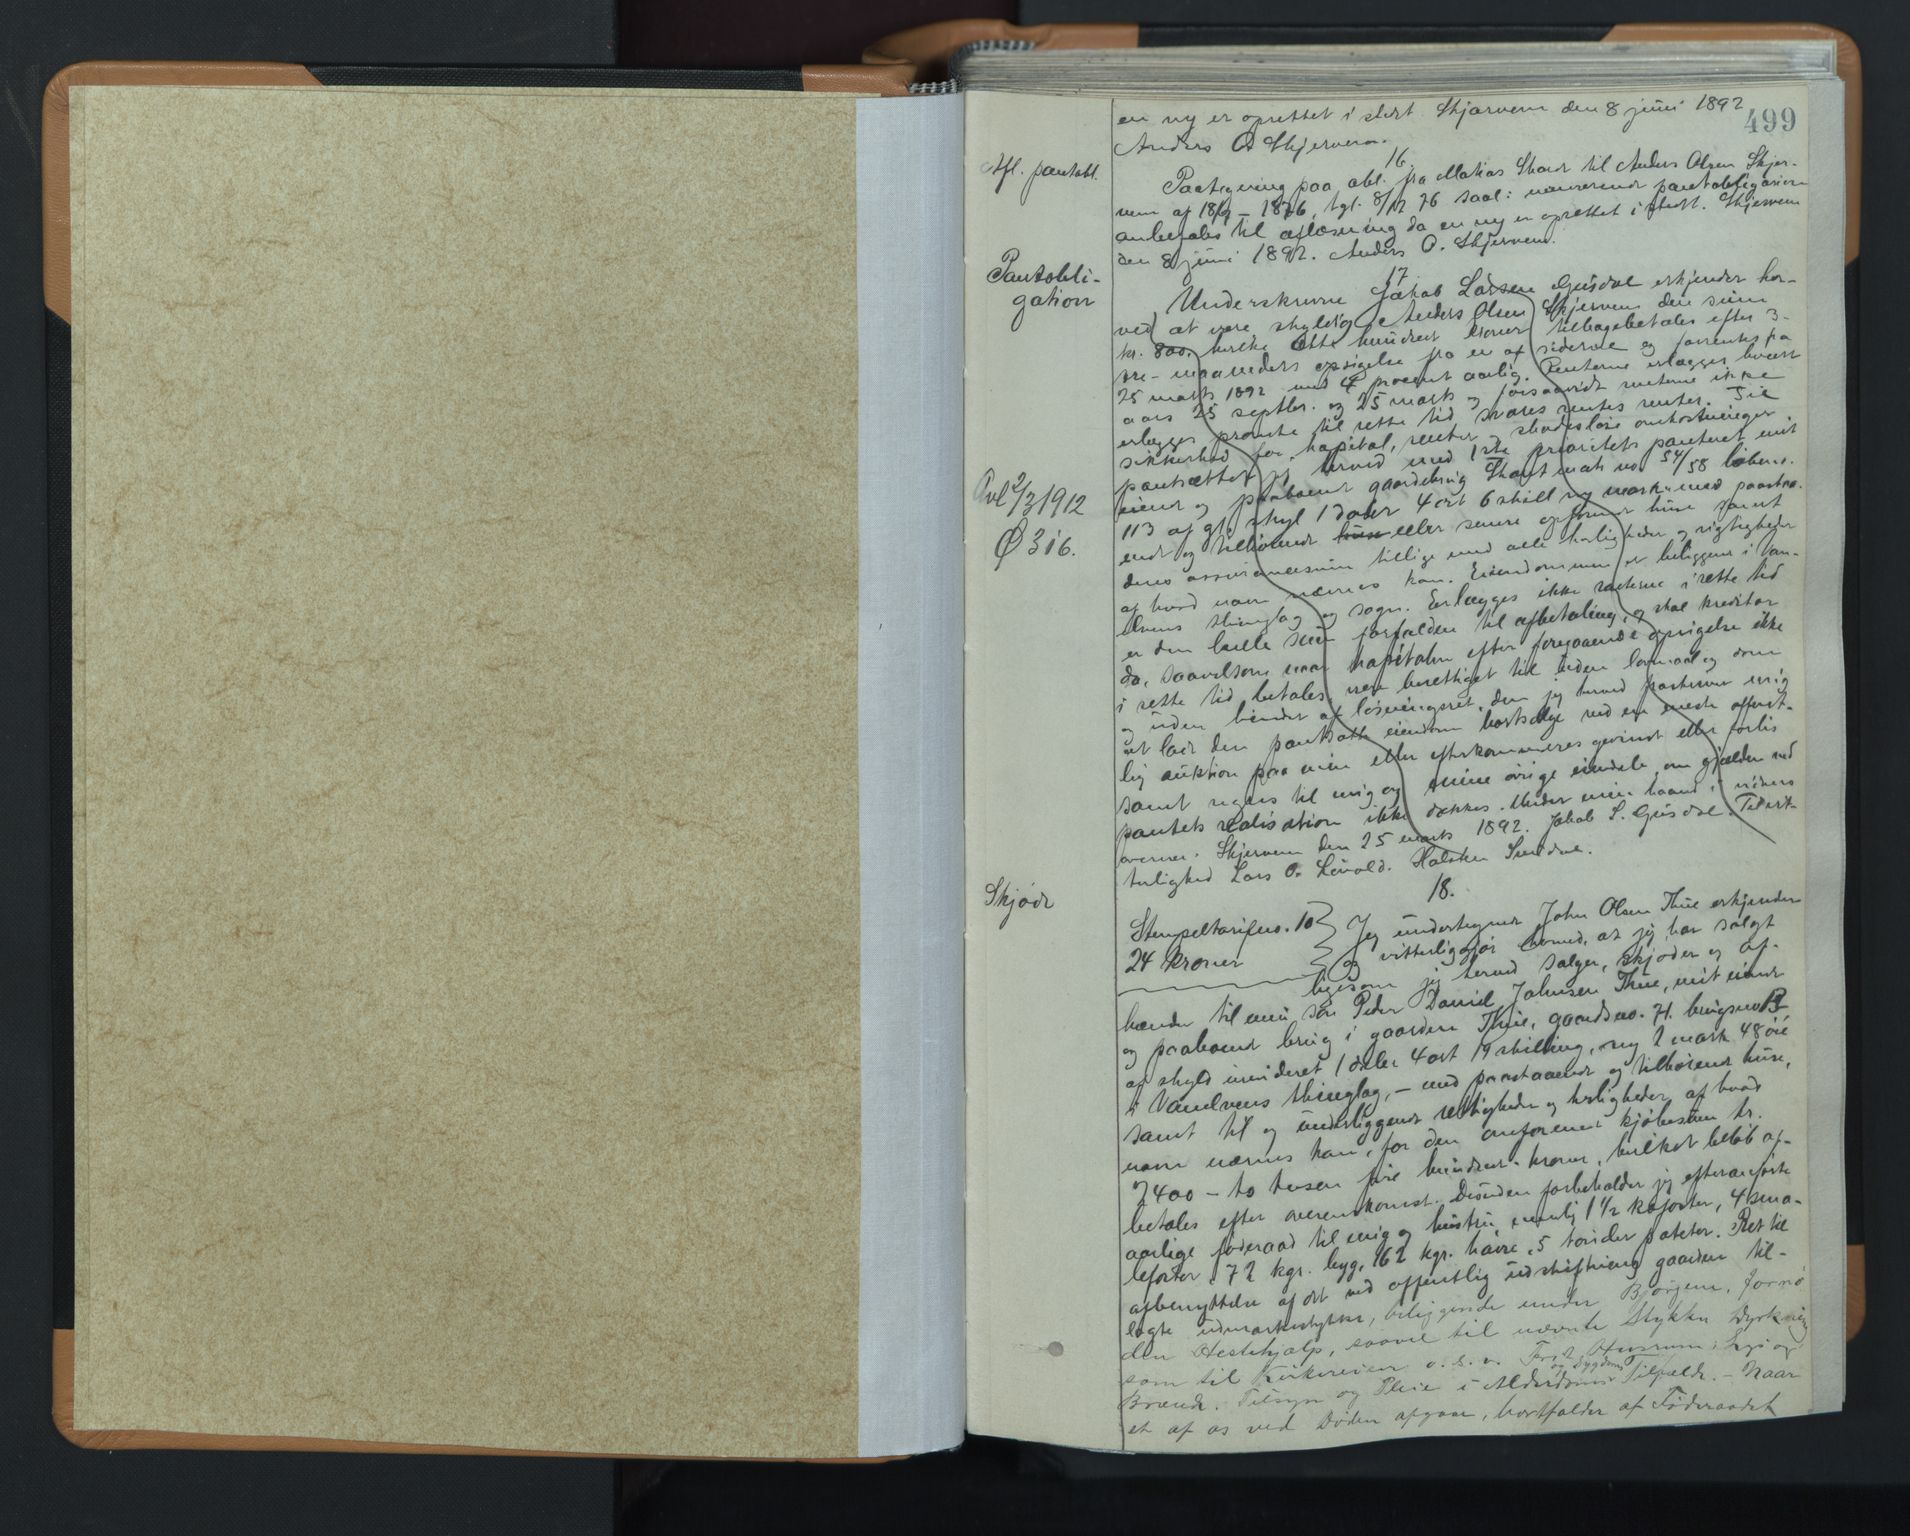 499
en ny er oprettet i stedt. Skjærvem den 8 juni 1892
Anders O Skjervem.
16.
Afl. pantobl.
Paategning paa obl. fra Matias Skaar til Anders Olsen Skjer-
vem af 18/9 - 1876, tgl. 8/12 76 saal: nærværende pantobligasion
anbefales til aflæsning da en ny er oprettet i stedt. Skjervem
den 8 juni 1892. Anders O. Skjervem.
17.
Pantobli-
gation
Underskrevne Jakob Larsen Gusdal erkjender her-
ved at være skyldig Anders Olsen Skjervem den sum
kr. 800. hvilke Otte hundrede kroner tilbagebetales efter 3-
tre- maaneders opsigelse fra en af siderne og forrentes fra
25 marts 1892 med 4 procent aarlig. Renterne erlægges hvert
aars 25 septbr. og 25 marts og forsaavidt renterne ikke
erlægges promte til rette tid svares rentes renter. Til
sikkerhed for kapital, renter og skadesløse omkostninger
pantsætter jeg herved med 1ste prioritets panteret mit
eiende og paaboende gaardebrug Skaar matr no 54/58 løbeno.
Avl 2/3 1912
Ø 316.
113 af gl. skyl 1 daler 4 ort 6 skill ny mark med paastaa-
ende og tilhørende huse eller senere opførende huse samt
deres assurancesum tillige med alle herligheder og rigtigheder
af hvad navn nævnes kan. Eiendommen er beliggende i Van-
elvens thinglag og sogn. Erlægges ikke renterne i rette tid
er den hele sum forfalden til afbetaling, og skal kreditor
da, saavelsom naar kapitalen efter foregaaende opsigelse ikke
i rette tid betales være berettiget til uden lovmaal og dom
og uden hinder af løsningsret, den jeg herved fraskriver mig
at lade den pantsatte eiendom bortsælge ved en eneste offent-
lig auktion paa min eller efterkommeres gevinst eller forlis
samt regres til mig og mine øvrige eiendele, om gjælden ved
pantets realisation ikke dækkes. Under min haand i vidners
overvær. Skjervem den 25 marts 1892. Jakob L. Gusdal. Til vit-
terlighed Lars O. Løvold. Halsten Sundal.
18.
Skjøde
Stempeltarifens. 10
24 kroner
Jeg undertegnede John Olsen Thue erkjender
og vitterliggjør herved, at jeg har solgt
ligesom jeg herved sælger, skjøder og af-
hænder til min søn Peder Daniel Johnsen Thue, mit eiende
og paaboende brug i gaarden Thue, gaardsno. 71. brugsno
af skyld revideret 1 daler 4 ort 19 skilling, ny 2 mark 48 øre
i Vanelvens thinglag, - med paastaaende og tilhørende huse,
samt til og underliggende rettigheder og herligheder, af hvad
navn nævnes kan, for den omforenede kjøbesum kr.
2400 - to tusen fire hundrede kroner, hvilket beløb af-
betales efter overenskomst. Desuden forbeholder jeg efteranførte
aarlige føderaad til mig og hustru, nemlig 1 1/2 kofoster, 4 sma-
lefoster, 72 kgr. byg, 162 kgr. havre, 5 tønder poteter. Ret til
afbenyttelse af det ved offentlig udskiftning gaarden til-
lagte udmarksstykke, beliggende under Bjørgene, fornø-
den Hestehjælp, saavel til nævnte Stykkes Dyrkning
som til Kirkereiser o. s. v. Frit Husrum, Lys og
Brænde. Tilsyn og Pleie i Alderdoms og Sygdoms Tilfælde. - Naar
et af os ved Døden afgaar, bortfalder af Føderaadet